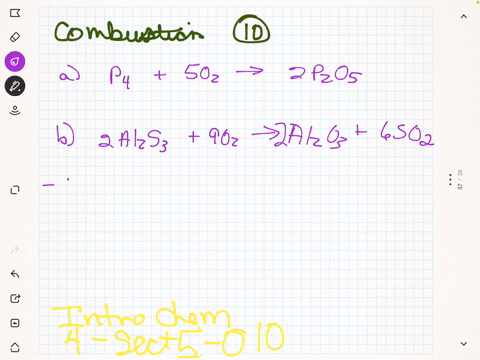 Combustion 10
a) P4 + 5O2 → 2P2O5
b) 2Al2S3 + 9O2 → 2Al2O3 + 6SO2
Intro chem
4-Sect5-010